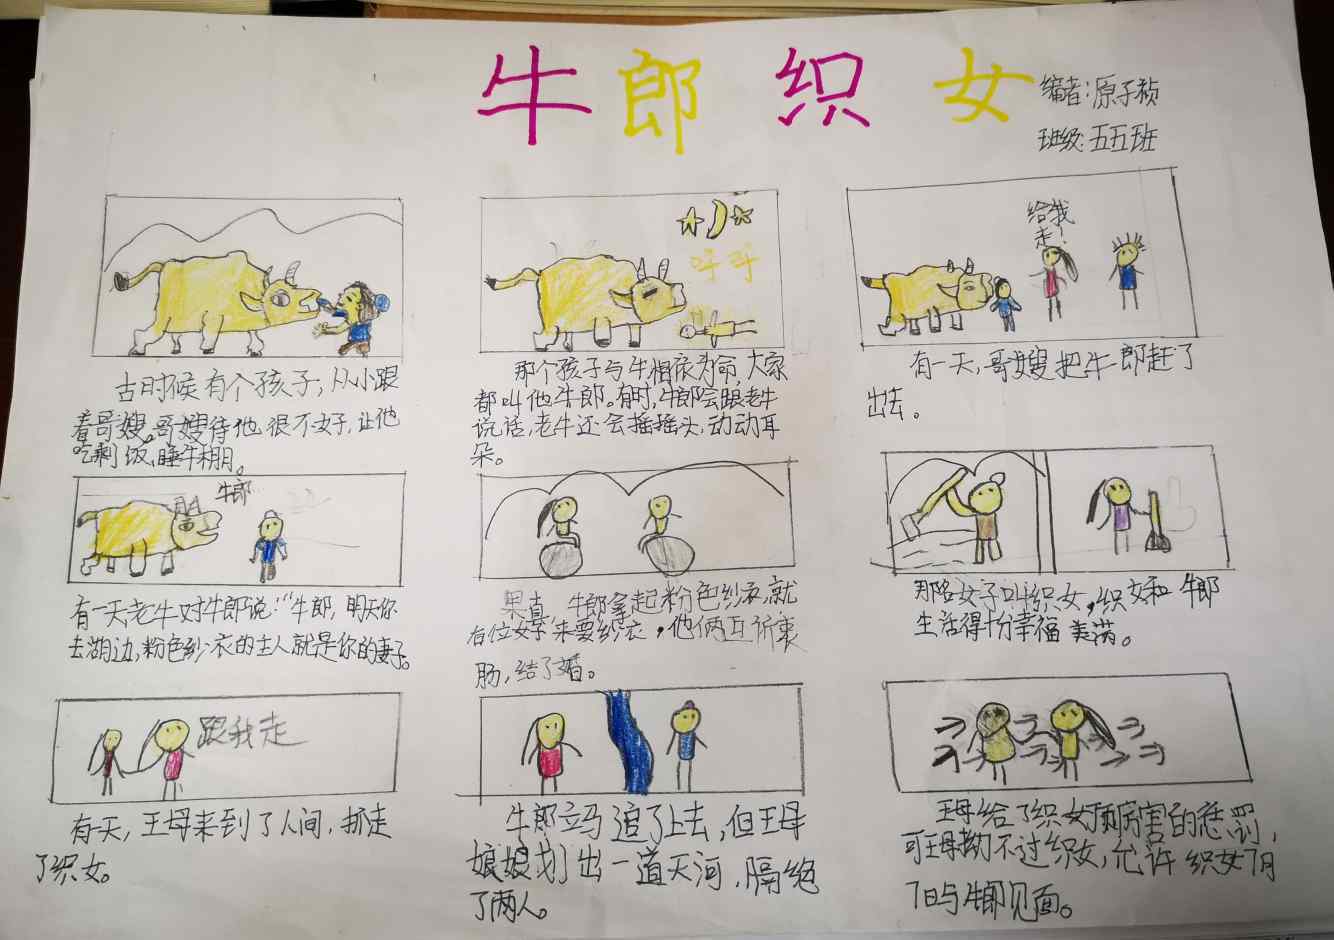 牛郎织女
编者:原子祯
班级:五五班
古时候有个孩子,从小跟
着哥嫂。哥嫂待他很不好,让他
吃剩饭,睡牛棚。
呼呼
那个孩子与牛相依为命,大家
都叫他牛郎。有时,牛郎会跟老牛
说话,老牛还会摇摇头,动动耳
朵。
给我
走!
有一天,哥嫂把牛郎赶了
出去。
牛郎
有一天老牛对牛郎说:“牛郎,明天你
去湖边,粉色纱衣的主人就是你的妻子。
果真,牛郎拿起粉色纱衣,就
右位女子来要纱衣,他俩互诉衷
肠,结了婚。
那名女子叫织女,织女和牛郎
生活得十分幸福美满。
跟我走
有一天,王母来到了人间,抓走
了织女。
牛郎立马追了上去,但王母
娘娘划出一道天河,隔绝
了两人。
王母给了织女厉害的惩罚,
可王母拗不过织女,允许织女7月
7日与牛郎见面。